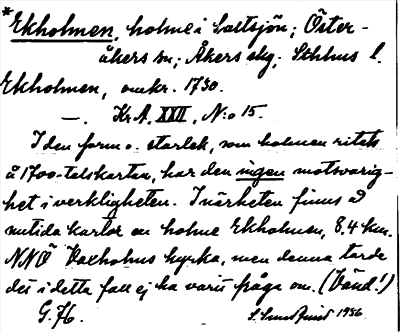 *Ekholmen, holme i Saltsjön; Öster-
åkers sn; Åkers skg; Sthlms l.
Ekholmen, omkr. 1730.
—. Kr A, XXII, No 15.
I den form o. storlek, som holmen ritats
å 1700-talskartan, har den ingen motsvarig-
het i verkligheten. I närheten finns å
nutida kartor en holme Ekholmen, 8,4 km.
NNÖ Vaxholms kyrka, men denna torde
det i detta fall ej ha varit fråga om. (Vänd!)
G. H. 1936